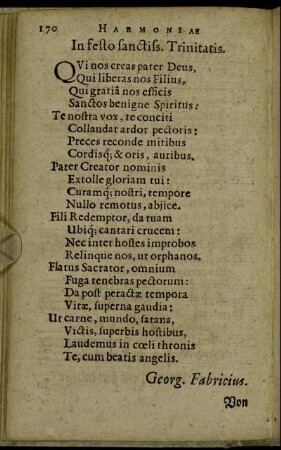 170 HARMONIAE
In festo sanctiss. Trinitatis.
QVi nos creas pater Deus,
Qui liberas nos Filius,
Qui gratiâ nos efficis
Sanctos benigne Spiritus:
Te nostra vox, te conciti
Collaudat ardor pectoris:
Preces reconde mitibus
Cordisq; & oris, auribus.
Pater Creator nominis
Extolle gloriam tui:
Curamq; nostri, tempore
Nullo remotus, abjice.
Fili Redemptor, da tuam
Ubiq; cantari crucem:
Nec inter hostes improbos
Relinque nos, ut orphanos.
Flatus Sacrator, omnium
Fuga tenebras pectorum:
Da post peractæ tempora
Vitæ, superna gaudia:
Ut carne, mundo, satana,
Victis, superbis hostibus,
Laudemus in cœli thronis
Te, cum beatis angelis.
Georg. Fabricius.
Von